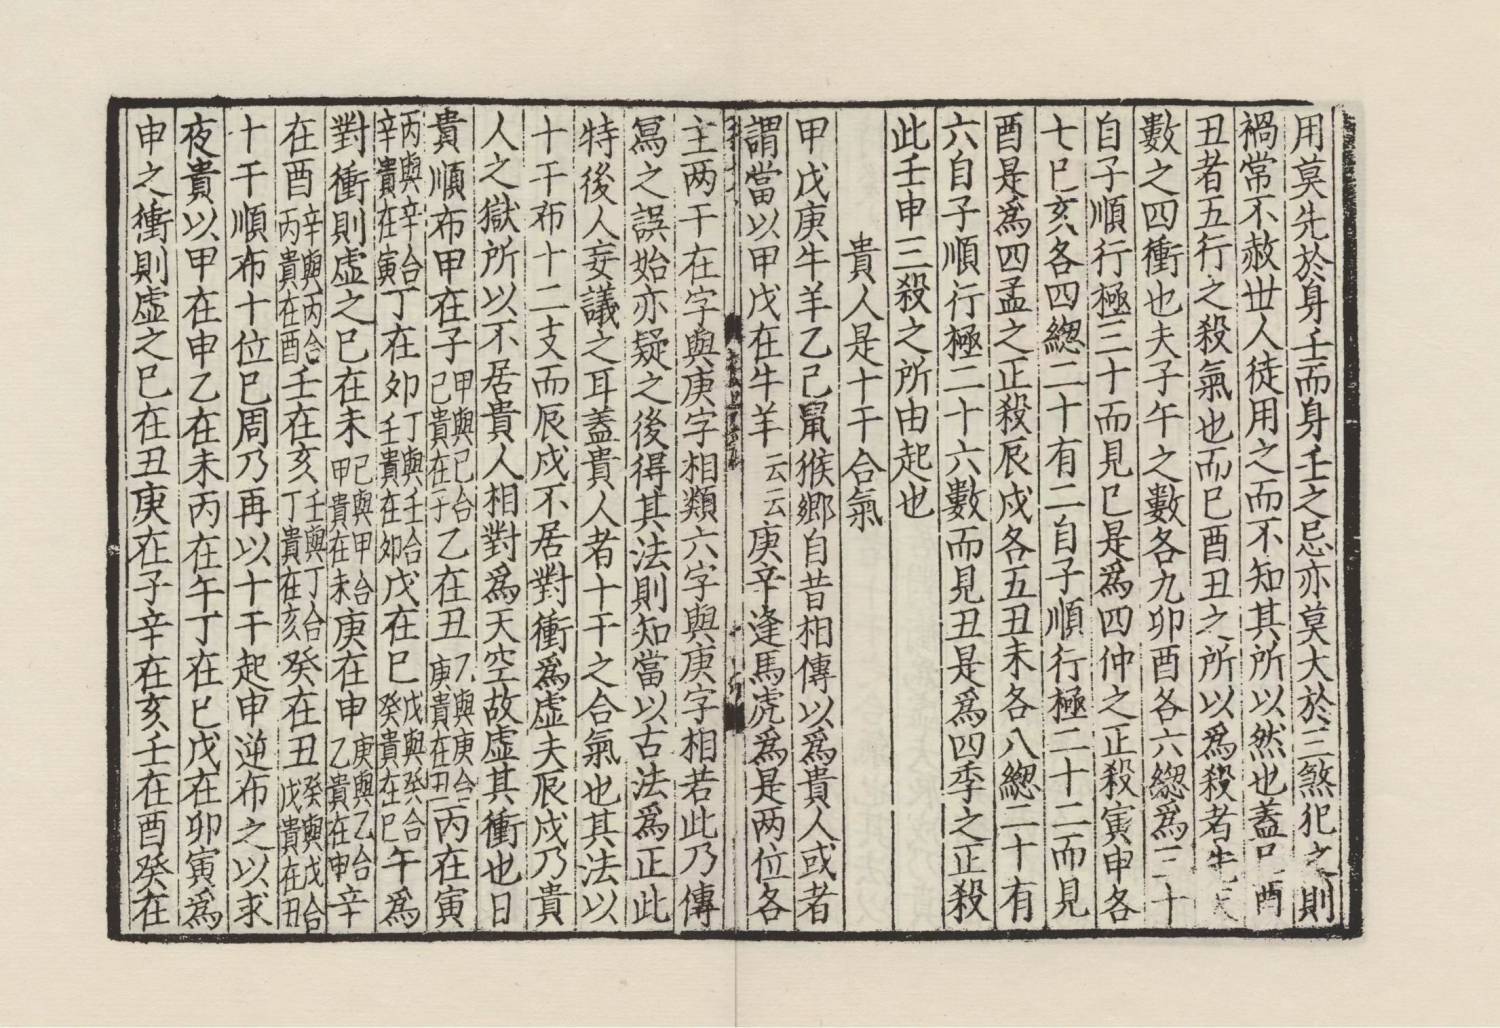 用莫先於身壬而身壬之忌亦莫大於三煞犯之則
禍常不赦丗人徒用之而不知其所以然也蓋巳酉
丑者五行之殺氣也而巳酉丑之所以爲殺者先天
數之四衝也夫子午之數各九卯酉各六緫爲三十
自子順行極三十而見巳是爲四仲之正殺寅申各
七巳亥各四緫二十有二自子順行極二十二而見
酉是爲四孟之正殺辰戍各五丑未各八緫二十有
六自子順行極二十六數而見丑是爲四季之正殺
此壬申三殺之所由起也
貴人是十干合氣
甲戊庚牛羊乙己鼠猴鄉自昔相傳以爲貴人或者
謂當以甲戊在牛羊云云庚辛逢馬虎爲是两位各
主两干在字與庚字相類六字與庚字相若此乃傳
冩之誤始亦疑之後得其法則知當以古法爲正此
特後人妄議之耳蓋貴人者十干之合氣也其法以
十干布十二支而辰戍不居對衝爲虚夫辰戍乃貴
人之獄所以不居貴人相對爲天空故虚其衝也日
貴順布甲在子甲與己合己貴在子乙在丑乙與庚合庚貴在丑丙在寅
丙與辛合辛貴在寅丁在卯丁與壬合壬貴在卯戊在巳戊與癸合癸貴在巳午爲
對衝則虚之己在未己與甲合甲貴在未庚在申庚與乙合乙貴在申辛
在酉辛與丙合丙貴在酉壬在亥壬與丁合丁貴在亥癸在丑癸與戊合戊貴在丑
十干順布十位巳周乃再以十干起申逆布之以求
夜貴以甲在申乙在未丙在午丁在巳戊在卯寅爲
申之衝則虚之己在丑庚在子辛在亥壬在酉癸在